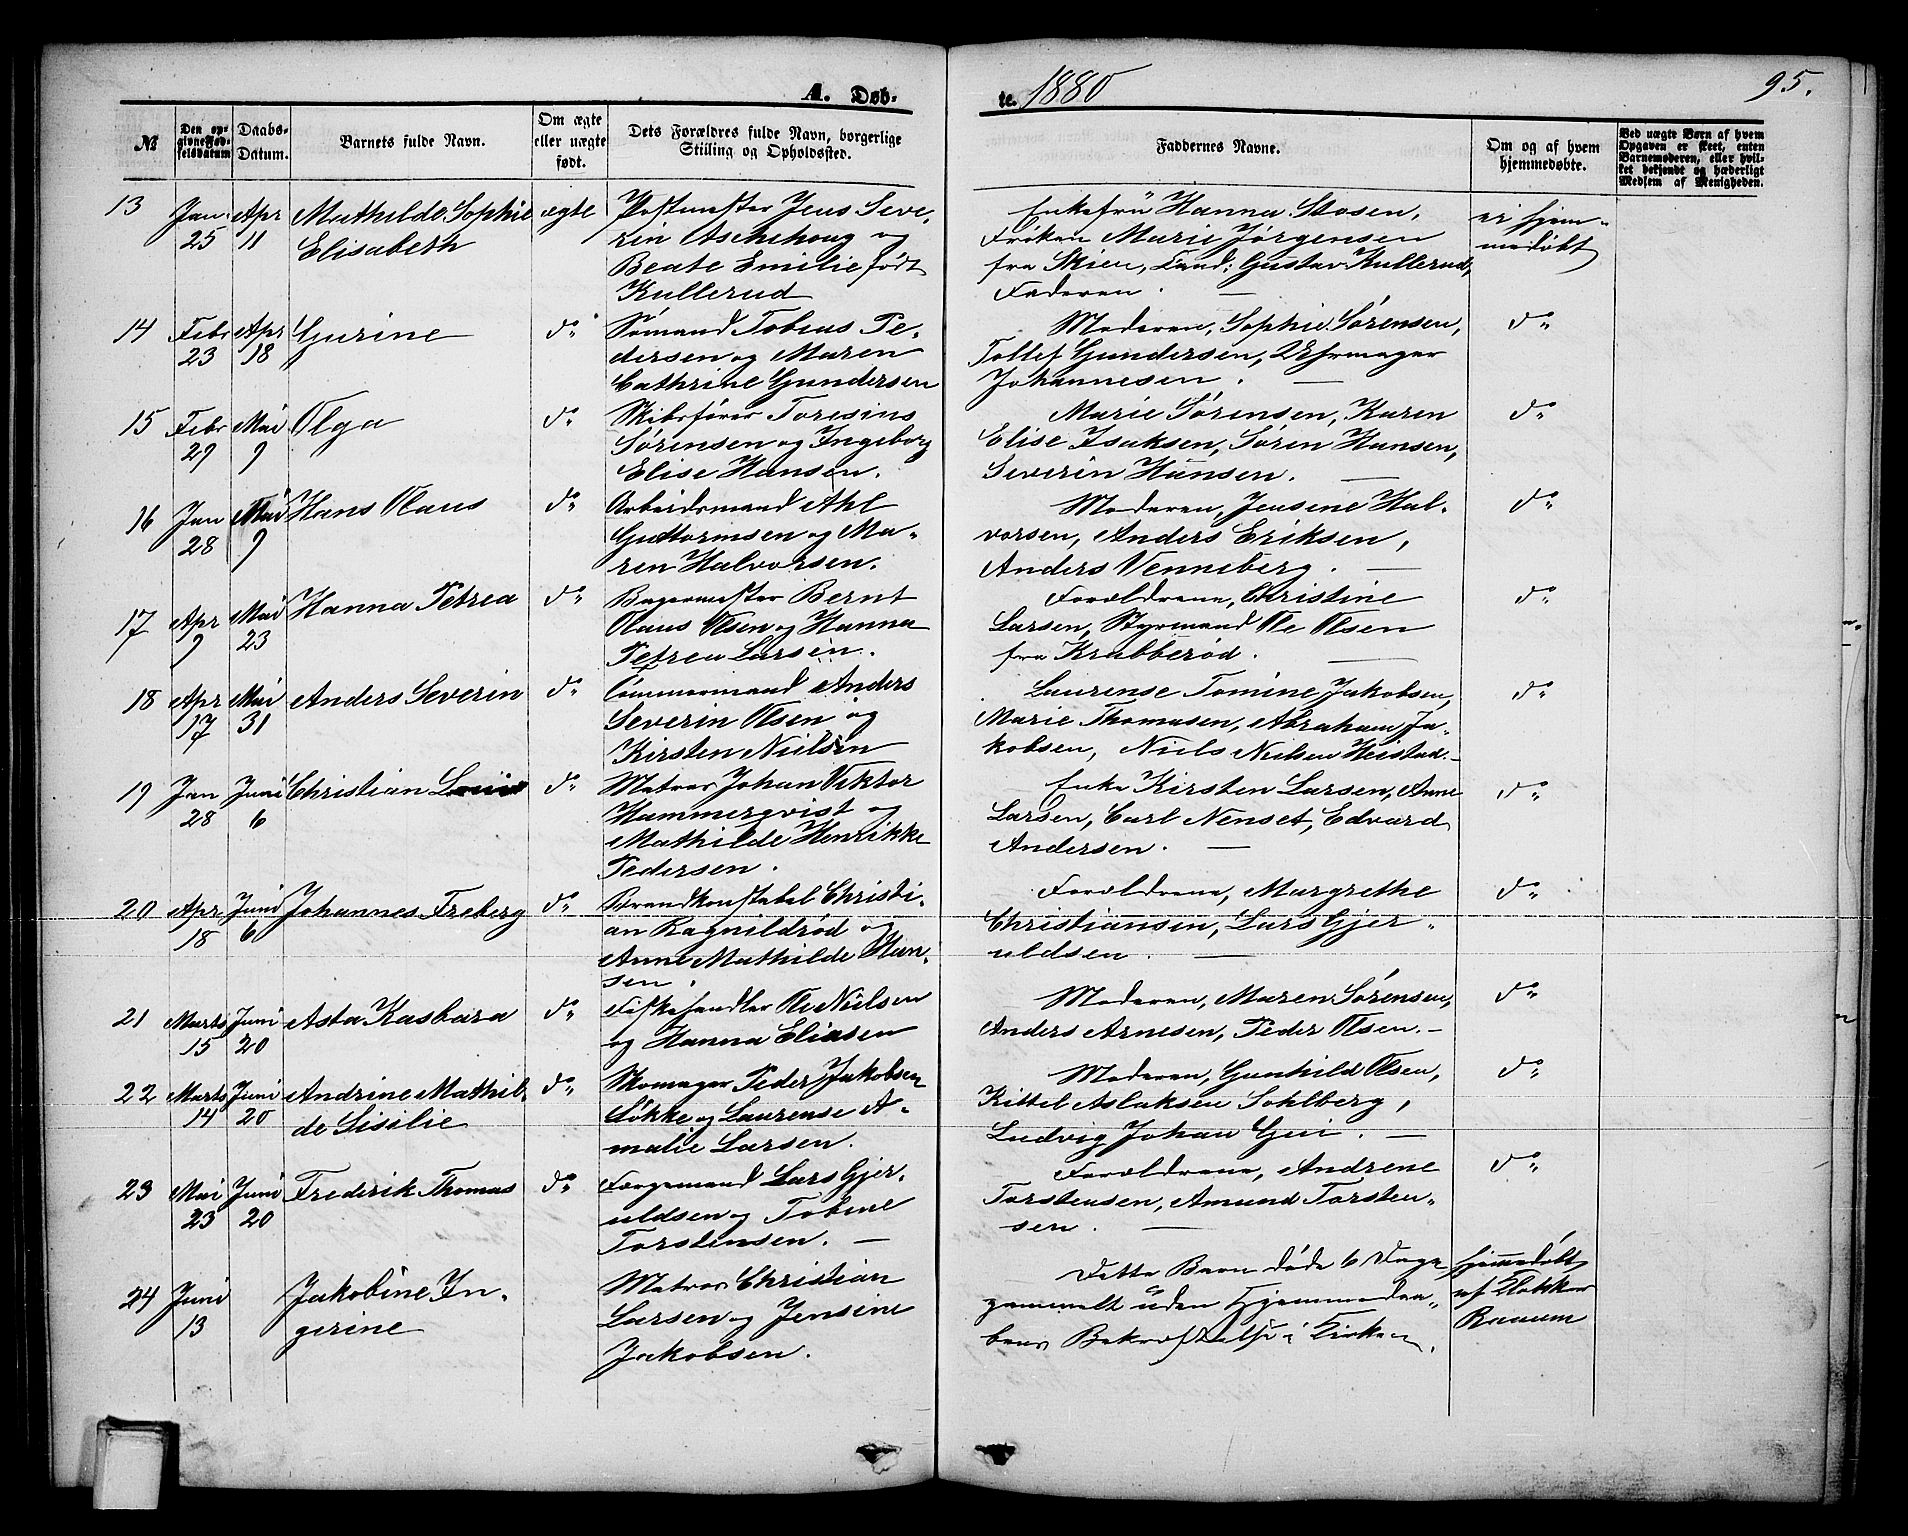 A. Døb-
te. 1880
95.
№
Den op-
givne Fød-
selsdatum
Daabs-
Datum.
Barnets fulde Navn.
Om ægte
eller uægte
født.
Dets Forældres fulde Navn, borgerlige
Stilling og Opholdssted.
Faddernes Navne.
Om og af hvem
hjemmedøbte.
Ved uægte Børn af hvem
Opgaven er skeet, enten
Barnemoderen, eller hvil-
ket bekjendt og hæderligt
Medlem af Menigheden.
13
Jan
25
Apr
11
Mathilde Sophie
Elisabeth
ægte
Postmester Jens Seve-
rin Aschehoug og
Beate Emilie født
Kullerud
Enkefrü Hanna Stosen,
Frøken Marie Jørgensen
fra Skien, Cand: Gustav Kullerud,
Faderen.
ei hjem-
medøbt
14
Febr
23
Apr
18
Gurine
do
Sømand Tobias Pe-
dersen og Maren
Cathrine Gundersen
Moderen, Sophie Sørensen,
Tollef Gundersen, Uhrmager
Johannesen.
do
15
Febr
29
Mai
9
Olga
do
Skibsfører Toresius
Sørensen og Ingeborg
Elise Hansen.
Marie Sørensen, Karen
Elise Isaksen, Søren Hansen,
Severin Hansen.
do
16
Jan
28
Mai
9
Hans Olaus
do
Arbeidsmand
Guttormsen og Ma-
ren Halvorsen.
Moderen, Jensene Hal-
vorsen, Anders Eriksen,
Anders Venneberg.
do
17
Apr
9
Mai
23
Hanna Petrea
do
Bagermester Bernt
Olaus Olsen og Hanna
Petrea Larsen.
Forældrene, Christine
Larsen, Styrmand Ole Olsen
fra Krabberød.
do
18
Apr
17
Mai
31
Anders Severin
do
Tømmermand Anders
Severin Olsen og
Kirsten Nielsen
Laurense Tomine Jakobsen,
Marie Thomasen, Abraham Ja-
kobsen, Niels Nielsen Heistad.
do
19
Jan
28
Juni
6
Christian
do
Matros Johan Viktor
Hammerqvist og
Mathilde Henrikke
Pedersen.
Enke Kirsten Larsen, Anne
Larsen, Carl Nenset, Edvard
Andersen.
do
20
Apr
18
Juni
6
Johannes Freberg
do
Brandkonstabel Christi-
an Ragnildrød og
Anne Mathilde Han-
sen.
Forældrene, Margrethe
Christiansen, Lars Gjer-
uldsen.
do
21
Marts
15
Juni
20
Asta Kasbara
do
Fiskehandler Ole Nielsen
og Hanna Eliasen
Moderen, Maren Sørensen,
Anders Arnesen, Peder Olsen.
do
22
Marts
14
Juni
20
Andrine Mathil-
de Sisilie
do
Skomager Peder Jakobsen
Løkke og Laurense A-
malie Larsen.
Moderen, Gunhild Olsen,
Kittel Aslaksen Sohlberg,
Ludvig Johan Gei.
do
23
Mai
23
Juni
20
Frederik Thomas
do
Færgemand Lars Gjer-
uldsen og Tobine
Torstensen.
Forældrene, Andrene
Torstensen, Amund Torsten-
sen.
do
24
Juni
13
Jakobine In-
gerine
Matros Christian
Larsen og Jensine
Jakobsen.
Dette Barn døde 6 Dage
gammelt uden Hjemmedaa-
bens Bekræftelse i Kirken.
hjemmedøbt
af Klokker
Raaum